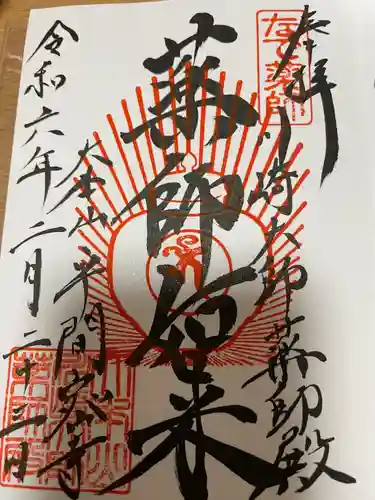 奉拝
川崎大師薬師殿
なで薬師
薬師如来
大本山平間寺
令和六年二月二十三日